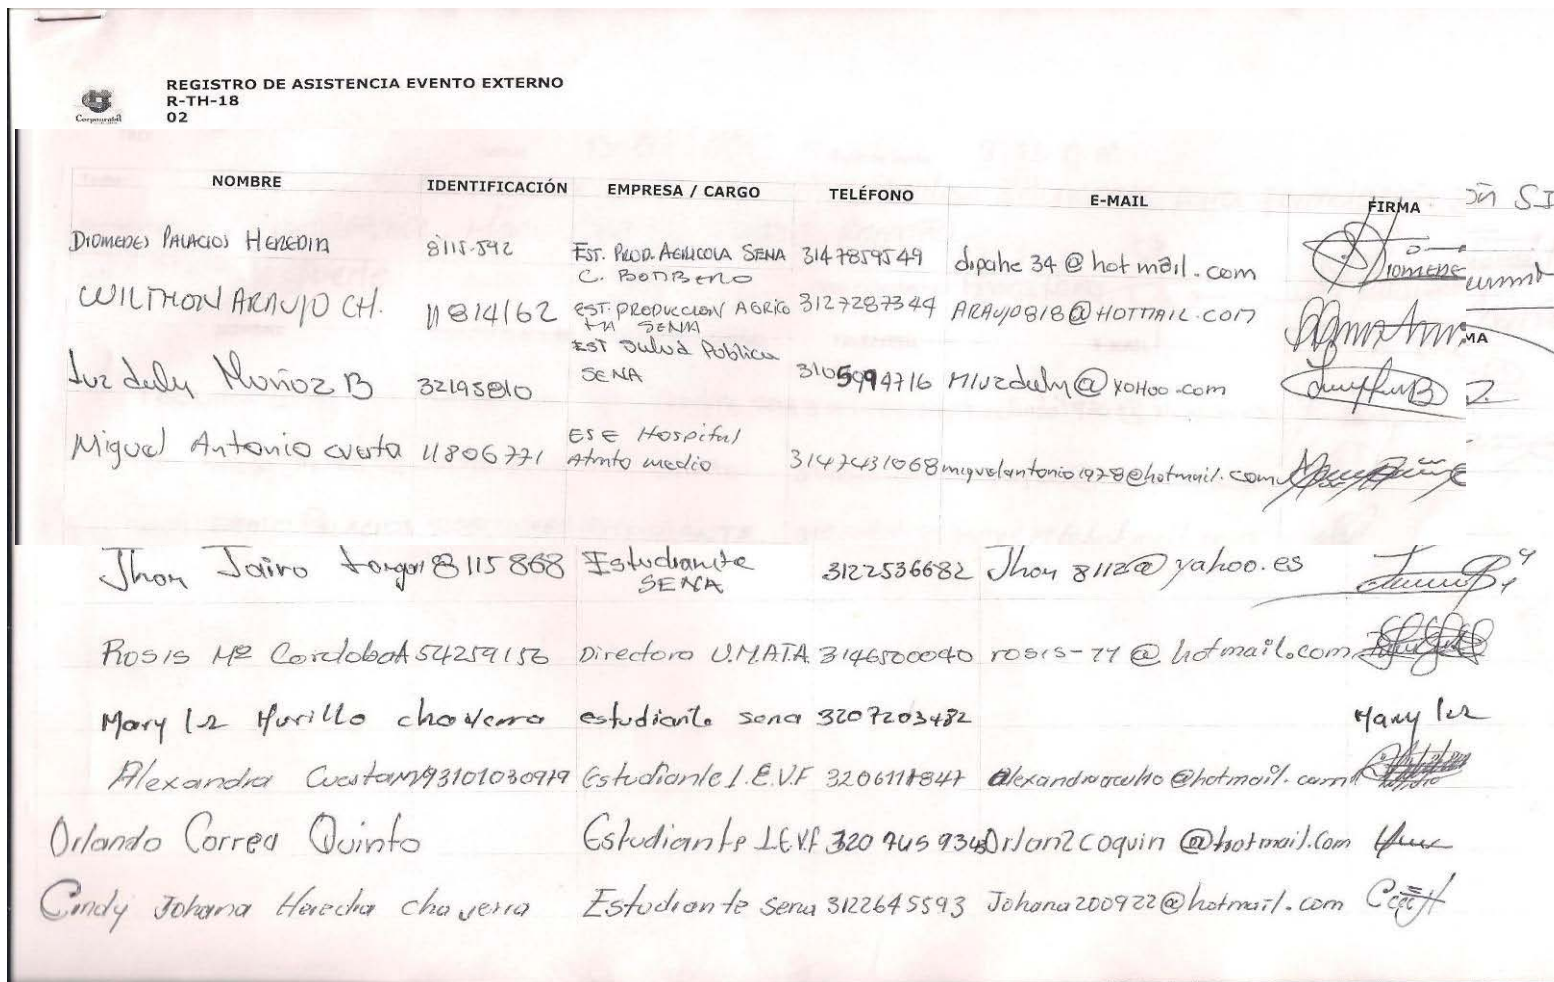 REGISTRO DE ASISTENCIA EVENTO EXTERNO
R-TH-18
02
NOMBRE IDENTIFICACIÓN EMPRESA / CARGO TELÉFONO E-MAIL FIRMA
DIOMEDES PALACIOS HEREDIA 8115.592 EST. PROD. AGRICOLA SENA 3147859549 dipahe34@hotmail.com
C. BOMBERO
WILTHON ARAUJO CH. 11814162 EST. PRODUCCION AGRICO 3127287344 ARAUJO818@HOTMAIL.COM
SENA
EST Salud Publica
Luz dely Muñoz B 32195810 SENA 3105994716 Mluzdely@YOHOO.com
MA
ESE Hospital
Miguel Antonio cuesta 11806771 Atrato medio 3147431068 miguelantonio1978@hotmail.com
Jhon Jairo 8115868 Estudiante 3122536682 Jhon8112@yahoo.es
SENA
Rosis Mª Cordoba A 54259156 Directora U.M.A.T.A. 3146500040 rosis-77@hotmail.com
Mary luz Murillo chaverra estudiante sena 3207203482 Mary luz
Alexandra Cuesta M 93101030979 Estudiante I.E.V.F 3206111847
Orlando Correa Quinto Estudiante I.E.V.F Orlan2coquin@hotmail.Com
Cindy Johana Heredia chaverra Estudiante Sena 3122645593 Johana200922@hotmail.com